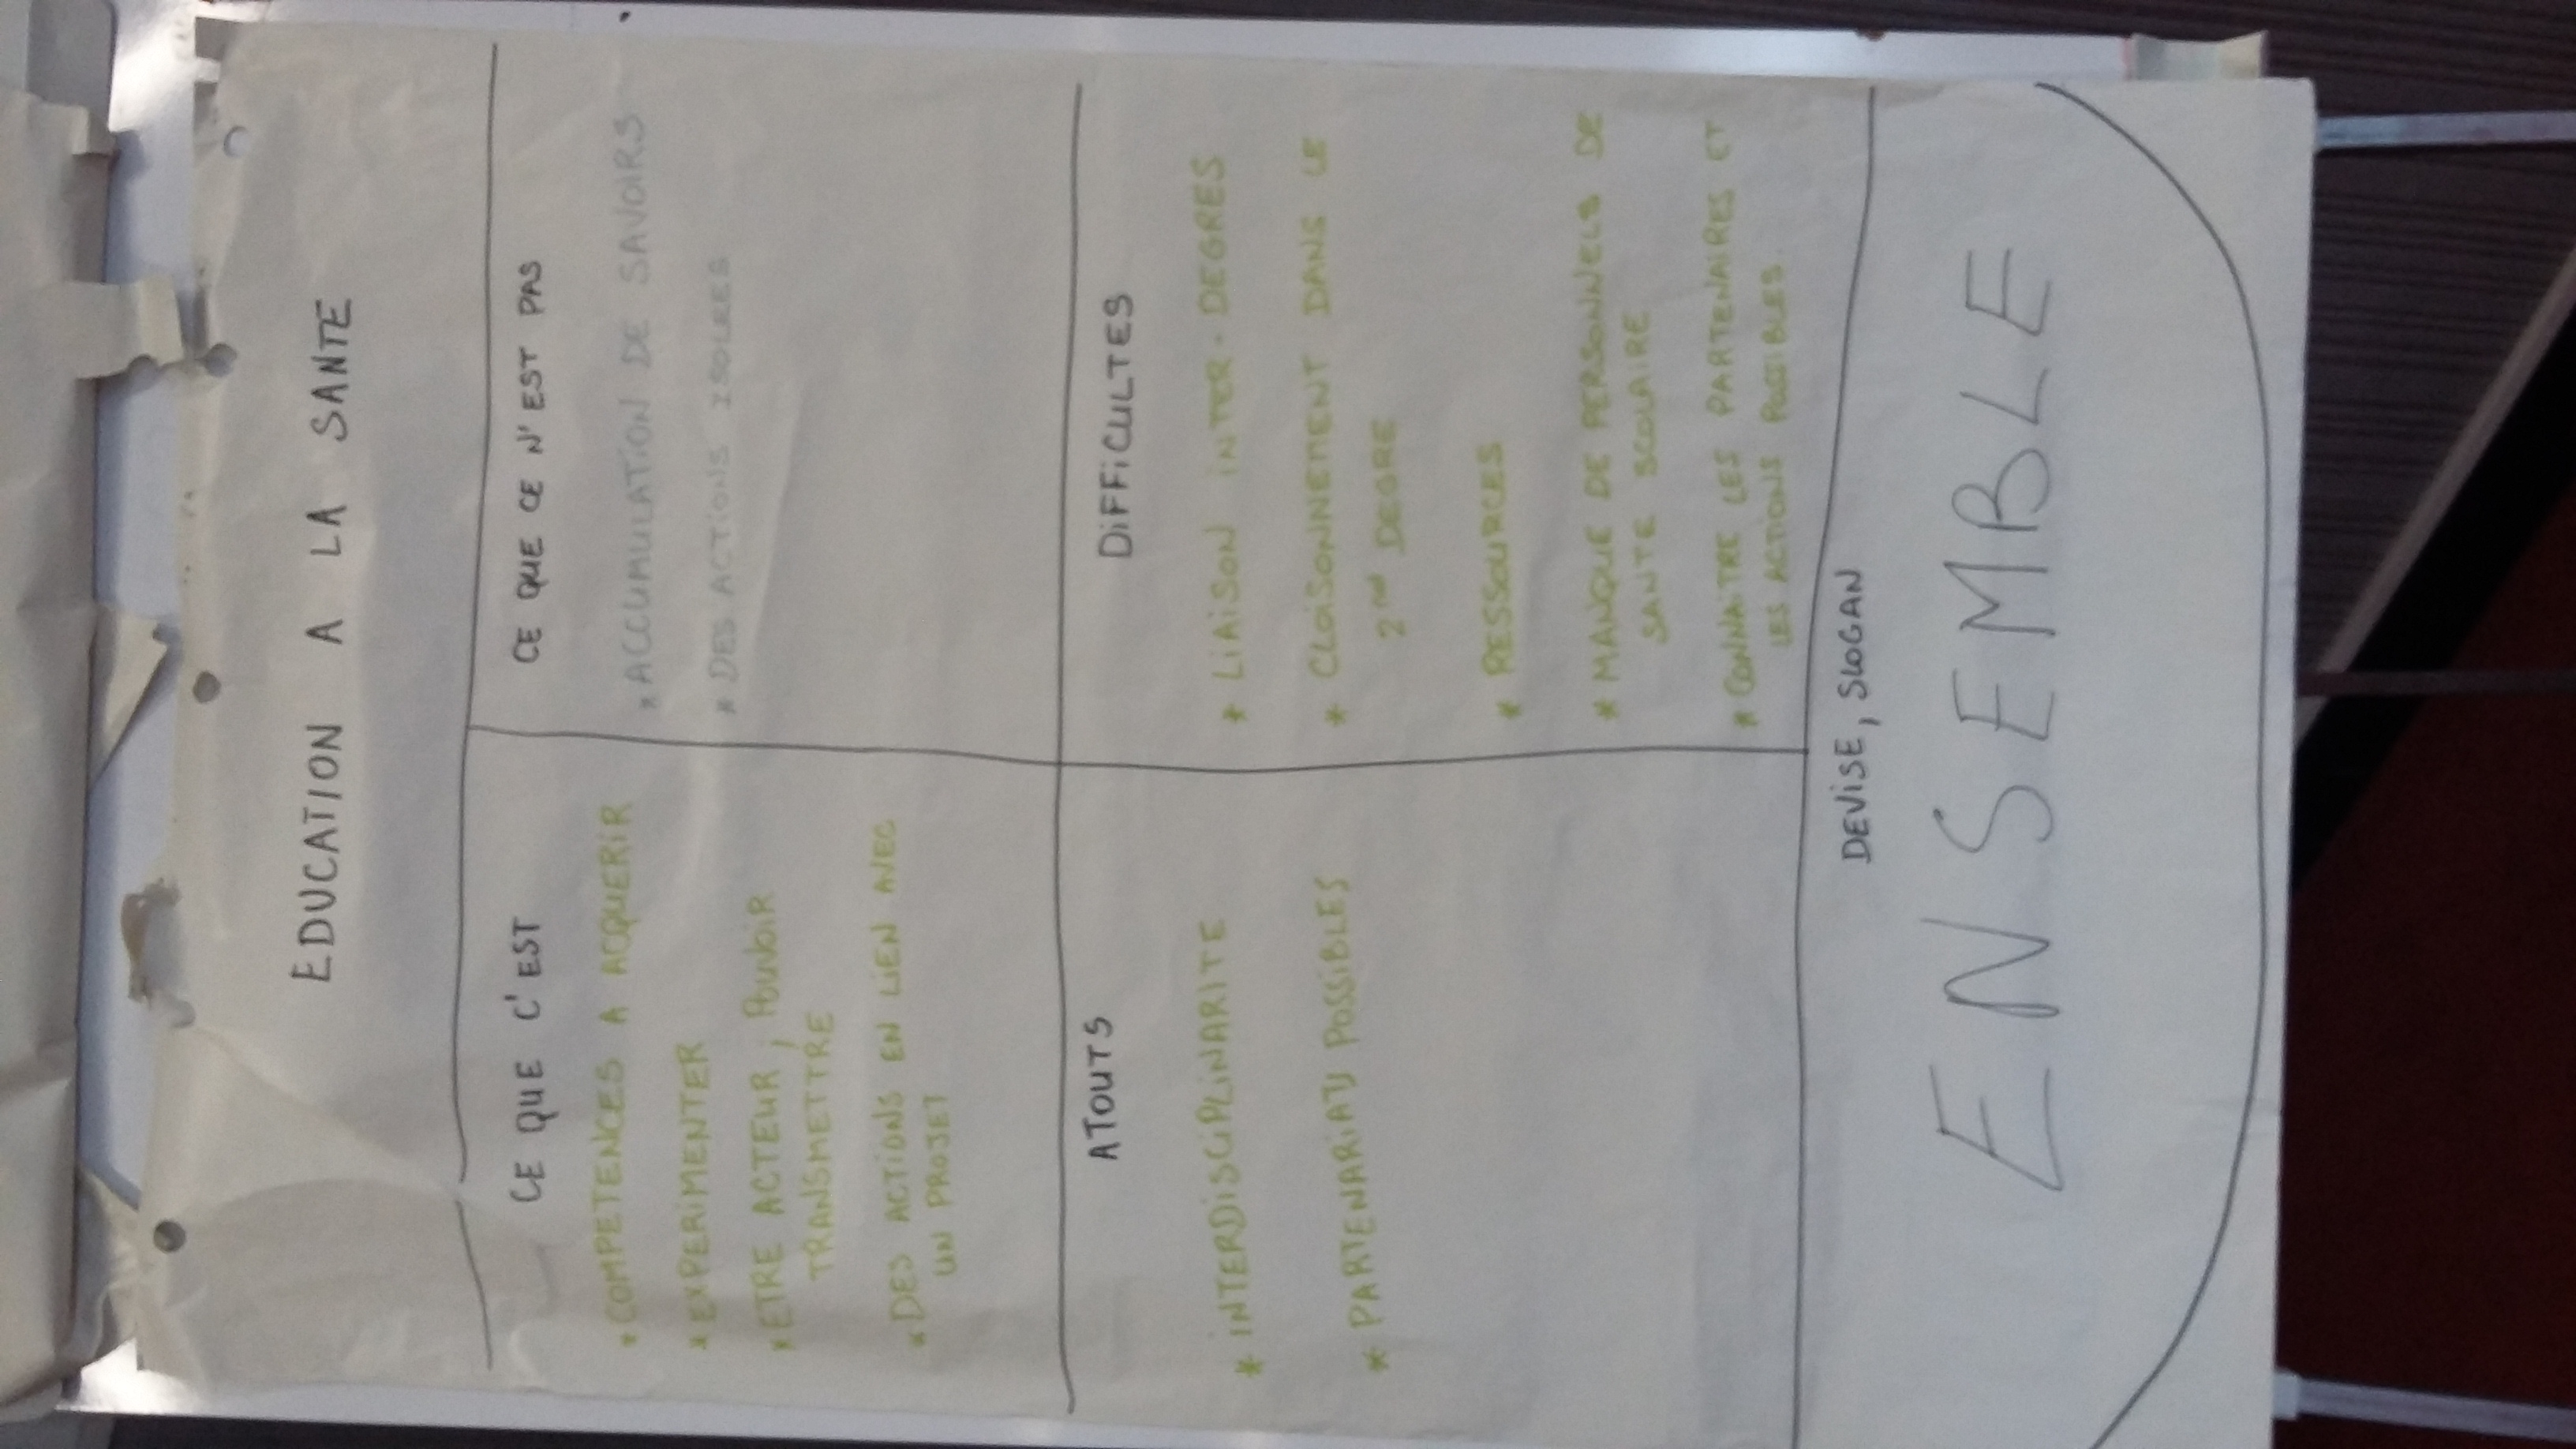 EDUCATION A LA SANTE
CE QUE C'EST
* COMPETENCES A ACQUERIR
* EXPERIMENTER
* ETRE ACTEUR, POUVOIR
TRANSMETTRE
* DES ACTIONS EN LIEN AVEC
UN PROJET
CE QUE CE N'EST PAS
* ACCUMULATION DE SAVOIRS
* DES ACTIONS ISOLEES
ATOUTS
* INTERDISCIPLINARITE
* PARTENARIATS POSSIBLES
DIFFICULTES
* LIAISON INTER-DEGRES
* CLOISONNEMENT DANS LE
2nd DEGRE
* RESSOURCES
* MANQUE DE PERSONNELS DE
SANTE SCOLAIRE
* CONNAITRE LES PARTENAIRES ET
LES ACTIONS POSSIBLES.
DEVISE, SLOGAN
ENSEMBLE